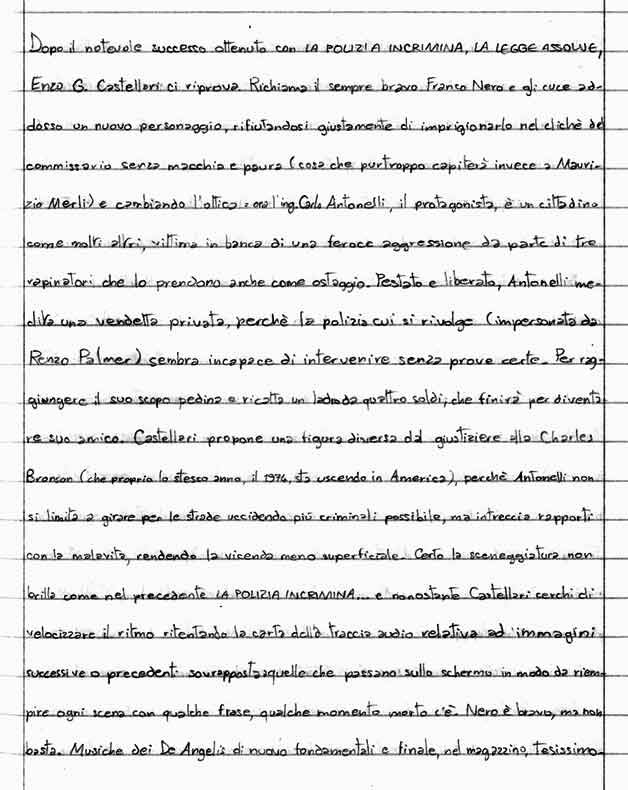 Dopo il notevole successo ottenuto con LA POLIZIA INCRIMINA, LA LEGGE ASSOLVE,
Enzo G. Castellari ci riprova. Richiama il sempre bravo Franco Nero e gli cuce ad-
dosso un nuovo personaggio, rifiutandosi giustamente di imprigionarlo nel clichè del
commissario senza macchia e paura (cosa che purtroppo capiterà invece a Mauri-
zio Merli) e cambiando l'ottica: ora l'ing. Carlo Antonelli, il protagonista, è un cittadino
come molti altri, vittima in banca di una feroce aggressione da parte di tre
rapinatori che lo prendono anche come ostaggio. Pestato e liberato, Antonelli me-
dita una vendetta privata, perchè la polizia cui si rivolge (impersonata da
Renzo Palmer) sembra incapace di intervenire senza prove certe. Per rag-
giungere il suo scopo pedina e ricatta un ladro da quattro soldi, che finirà per diventa-
re suo amico. Castellari propone una figura diversa dal giustiziere alla Charles
Bronson (che proprio lo stesso anno, il 1974, sta uscendo in America), perchè Antonelli non
si limita a girare per le strade uccidendo più criminali possibile, ma intreccia rapporti
con la malavita, rendendo la vicenda meno superficiale. Certo la sceneggiatura non
brilla come nel precedente LA POLIZIA INCRIMINA... e nonostante Castellari cerchi di
velocizzare il ritmo ritentando la carta della traccia audio relativa ad immagini
successive o precedenti sovrapposta a quelle che passano sullo schermo in modo da riem-
pire ogni scena con qualche frase, qualche momento morto c'è. Nero è bravo, ma non
basta. Musiche dei De Angelis di nuovo fondamentali e finale, nel magazzino, tesissimo.